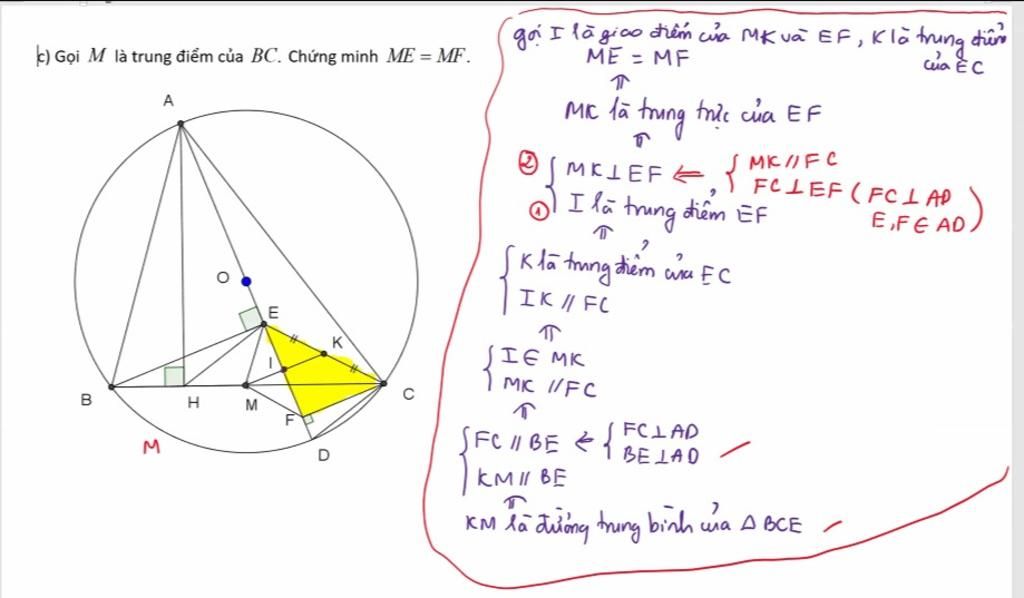 c) Gọi M là trung điểm của BC. Chứng minh ME = MF.
A
O
E
K
I
B
H
M
F
C
D
M
gọi I là giao điểm của MK và EF, K là trung điểm
của EC
ME = MF
⇑
MK là trung trực của EF
⇑
② { MK ⊥ EF ⇐ { MK // FC
FC ⊥ EF ( FC ⊥ AD
E, F ∈ AD )
① I là trung điểm EF
⇑
{ K là trung điểm của EC
IK // FC
⇑
{ I ∈ MK
MK // FC
⇑
{ FC // BE ⇐ { FC ⊥ AD
BE ⊥ AD
KM // BE
⇑
KM là đường trung bình của Δ BCE